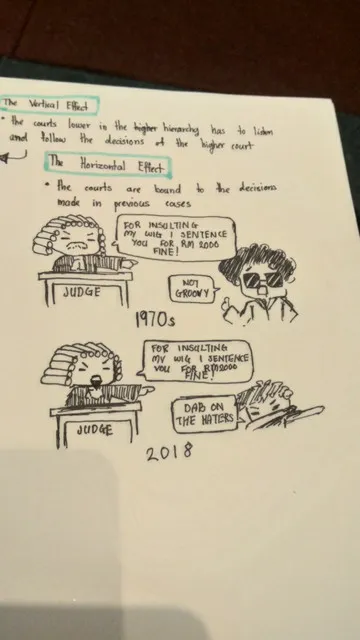 The Vertical Effect
• the courts lower in the higher hierarchy has to listen
and follow the decisions of the higher court
The Horizontal Effect
• the courts are bound to the decisions
made in previous cases
FOR INSULTING
MY WIG I SENTENCE
YOU FOR RM 2000
FINE!
JUDGE
NOT
GROOVY
1970s
FOR INSULTING
MY WIG I SENTENCE
YOU FOR RM2000
FINE!
JUDGE
DAB ON
THE HATERS
2018